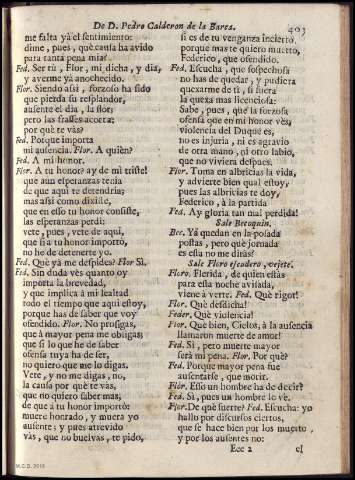 De D. Pedro Calderon de la Barca.
403
me falta yà el sentimiento:
dime, pues, què causa ha avido
para tanta pena mia?
Fed. Ser tù, Flor, mi dicha, y dia,
y averme yà anochecido.
Flor. Siendo assi, forzoso ha sido
que pierda su resplandor,
ausente el dia, la flor;
pero las frasses acorta;
por què te vàs?
Fed. Porque importa
mi ausencia. Flor. A quien?
Fed. A mi honor.
Flor. A tu honor? ay de mi triste!
que aun esperanzas tenia
de que aqui te detendria;
mas assi como dixiste,
que en esso tu honor consiste,
las esperanzas perdi:
vete, pues, vete de aqui,
que si a tu honor importò,
no he de detenerte yo.
Fed. Què yà me despides? Flor. Si.
Fed. Sin duda vès quanto oy
importa la brevedad,
y que implica à mi lealtad
todo el tiempo que aqui estoy,
porque has de saber que voy
ofendido. Flor. No prosigas,
que à mayor pena me obligas;
que si lo que he de saber
ofensa tuya ha de ser,
no quiero que me lo digas.
Vete, y no me digas, no,
la causa por què te vàs,
que no quiero saber mas,
de que à tu honor importò:
muere honrado, y muera yo
ausente; y pues atrevido
vàs, que no buelvas, te pido,
si es de tu venganza incierto,
porque mas te quiero muerto,
Federico, que ofendido.
Fed. Escucha, que sospechosa
no has de quedar, y pudiera
quexarme de ti, si fuera
la quexa mas licenciosa:
Sabe, pues, que la forzosa
ofensa que en mi honor vès,
violencia del Duque es,
no es injuria, ni es agravio
de otra mano, ni otro labio,
que no viviera despues.
Flor. Toma en albricias la vida,
y advierte bien qual estoy,
pues las albricias te doy,
Federico, à la partida
Fed. Ay gloria tan mal perdida!
Sale Becoquin.
Bec. Yà quedan en la posada
postas, pero què jornada
es esta no me diràs?
Sale Floro escudero, vejete.
Floro. Flerida, de quien estàs
para esta noche avisada,
viene à verte. Fed. Què rigor!
Flor. Què desdicha!
Feder. Què violencia!
Flor. Què bien, Cielos, à la ausencia
llamaron muerte de amor!
Fed. Si, pero muerte mayor
serà mi pena. Flor. Por què?
Fed. Porque mayor pena fue
ausentarse, que morir.
Flor. Esso un hombre ha de decir?
Fed. Si, pues un hombre lo vè.
Flor. De què suerte? Fed. Escucha: yo
hallo por discursos ciertos,
que se hace bien por los muertos,
y por los ausentes no:
Eee 2
el
M.C.D. 2018